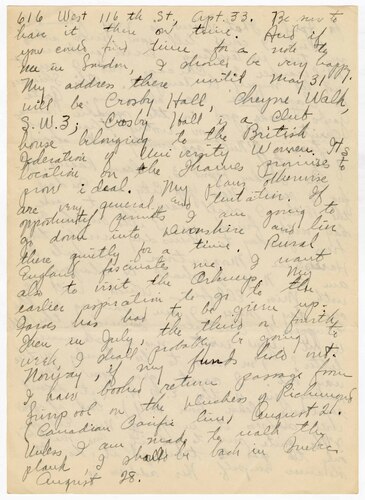 616 West 116th St, Apt. 33. Be sure to
have it there on time. And if
you could find time for a note to
me in London, I should be very happy.
My address there until May 31
will be Crosby Hall, Cheyne Walk,
S.W.3; Crosby Hall is a club
house belonging to the British
Federation of University Women. Its
location on the Thames promises to
prove ideal. My plans otherwise
are very general and tentative. If
opportunity permits I am going to
go down into Devonshire and live
there quietly for a time. Rural
England fascinates me. I want
also to visit the Orkneys. My
earlier aspiration to go to the
Faroes has had to be given up.
Then in July, the third or fourth
week I shall probably be going to
Norway, if my funds hold out.
I have booked return passage from
Liverpool on the Duchess of Richmond
(Canadian Pacific line, August 21.
Unless I am made to walk the
plank I shall be back in Quebec
August 28.